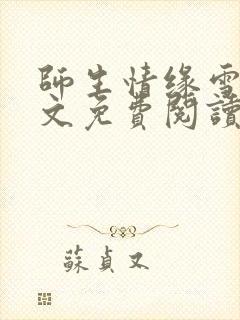 師生情緣雪
文免費閱讀
蘇貞又